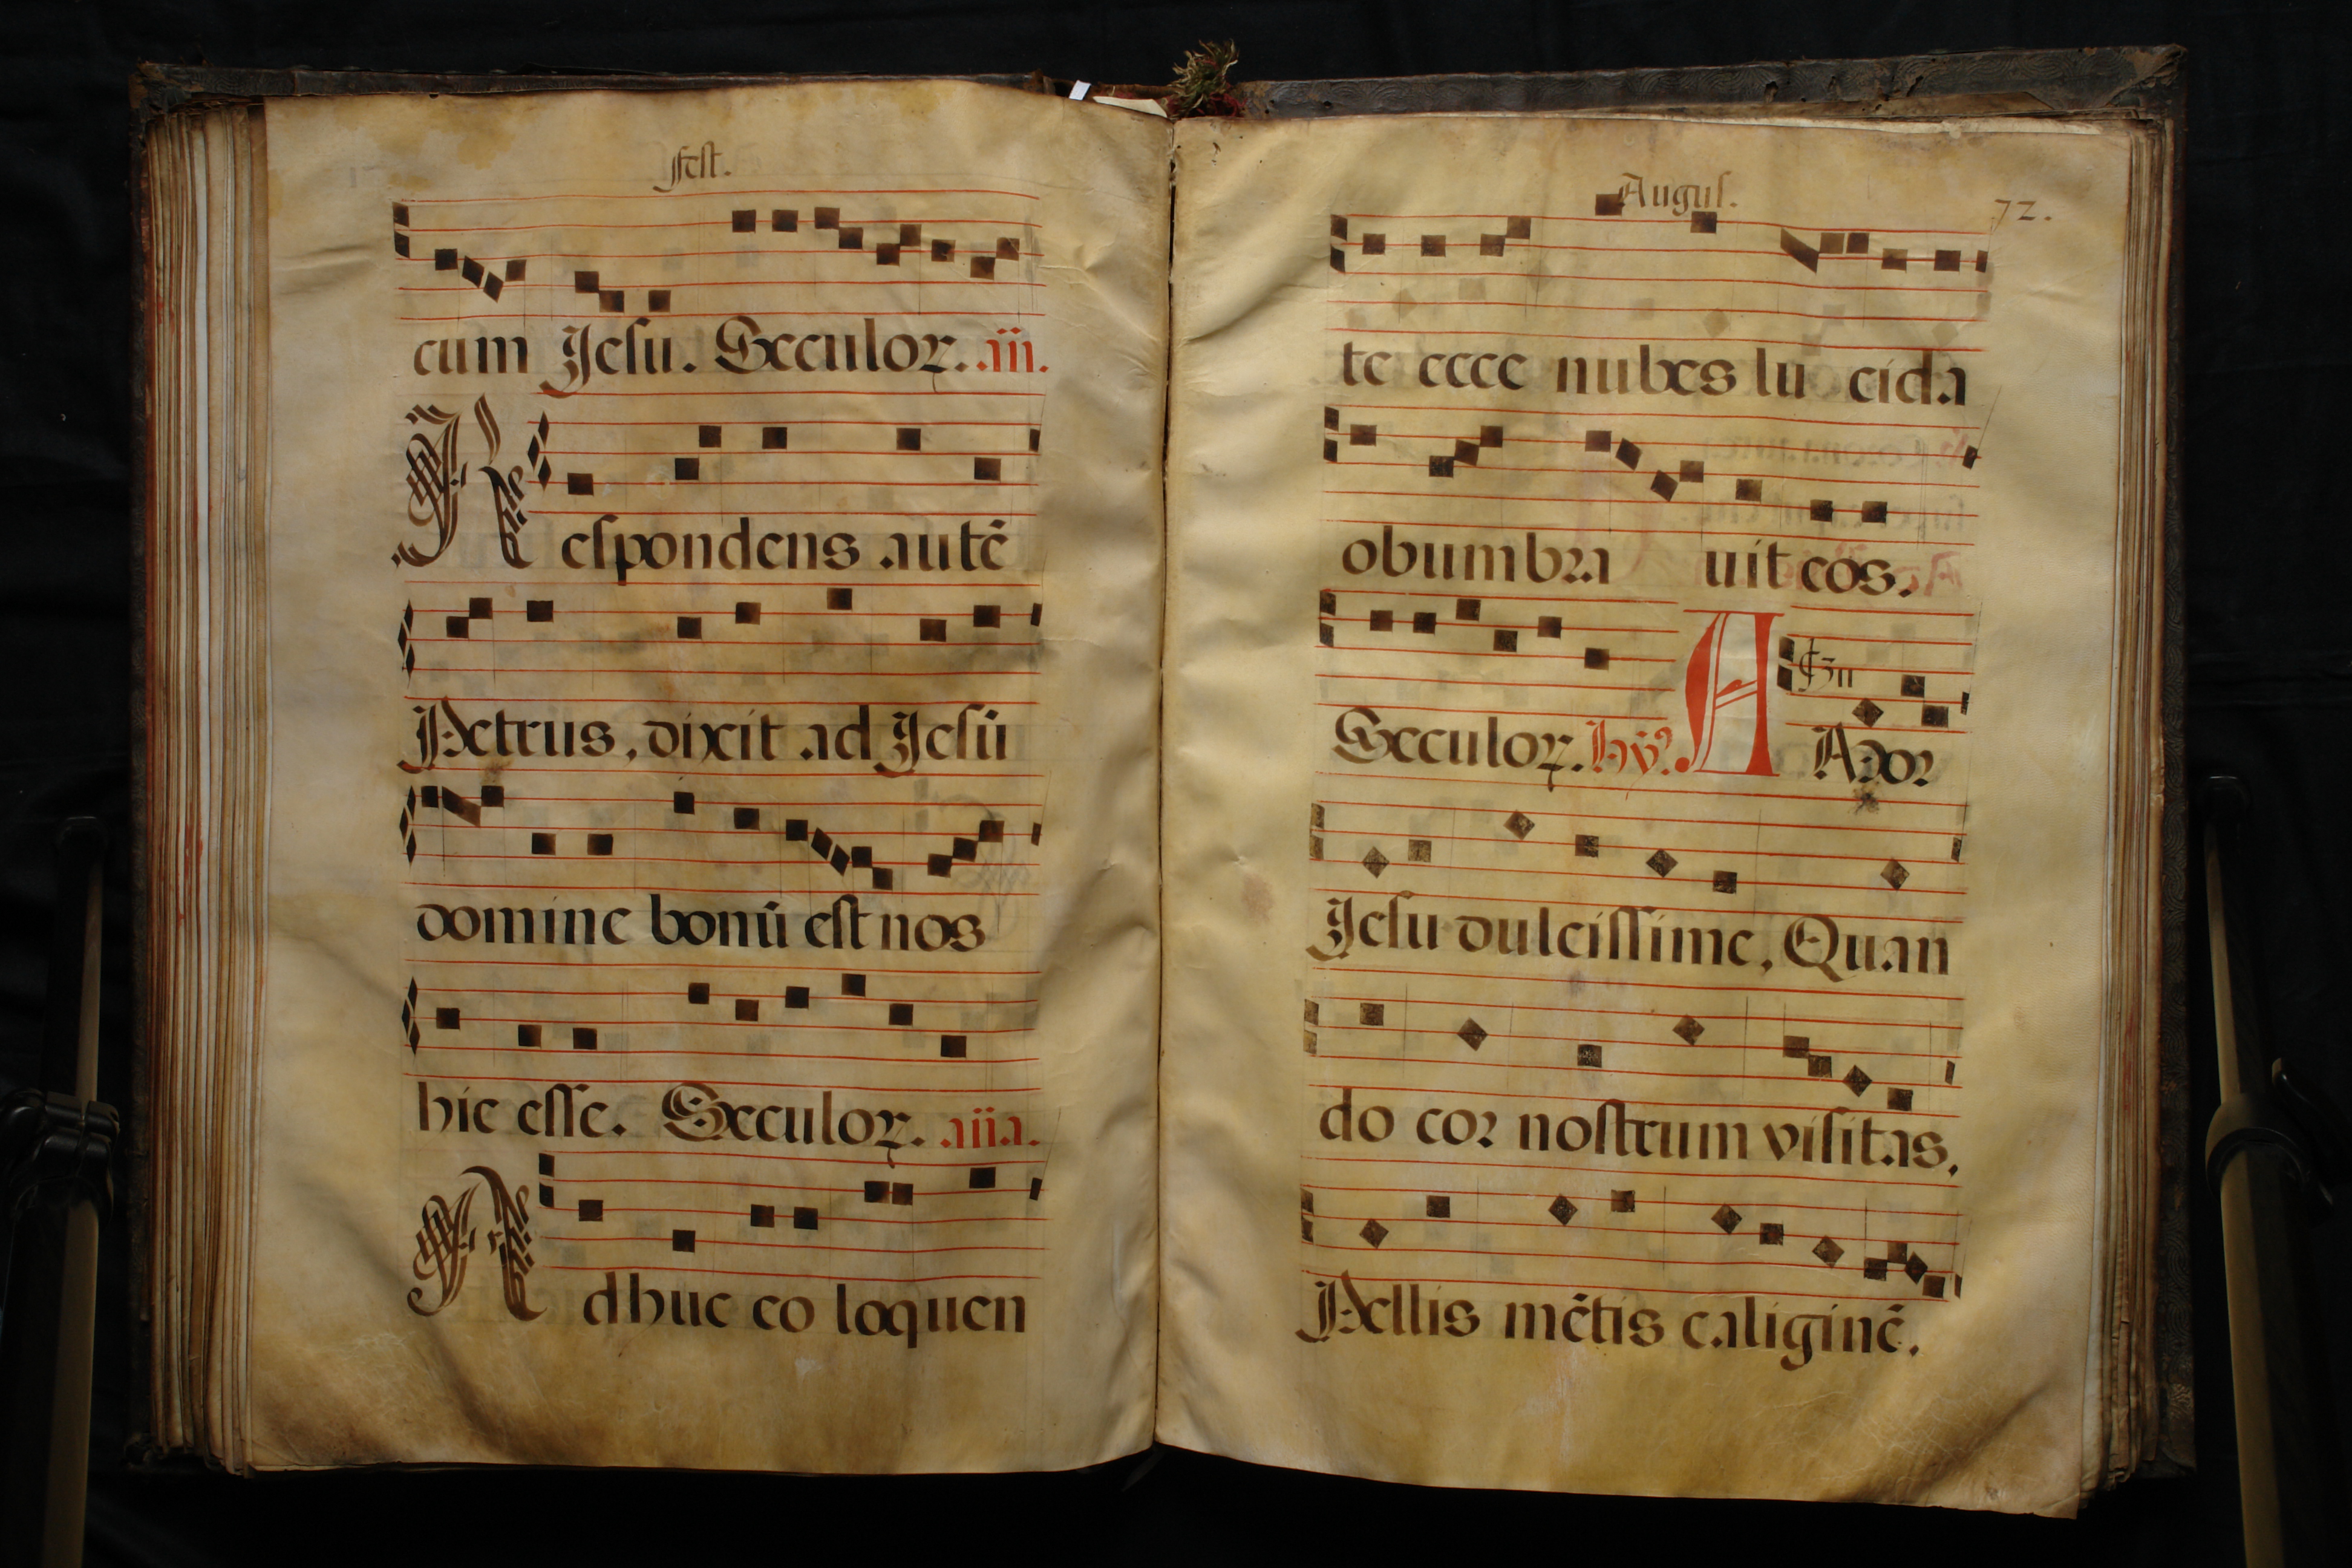 Fest.
cum Jesu. Seculoꝝ. .iii.
Respondens autē
Petrus, dixit ad Jesū
domine bonū est nos
hic esse. Seculoꝝ. .iiii.
Adhuc eo loquen
Augus. 72.
te ecce nubes lu cida
obumbra uit eos.
Seculoꝝ. hỹ. A Amor
Jesu dulcissime, Quan
do cor nostrum visitas,
Pellis mētis caliginē.